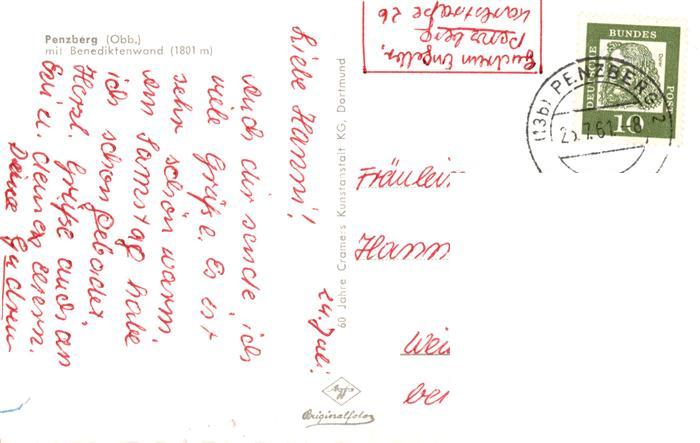 Penzberg (Obb.)
mit Benediktenwand (1801 m)
24. Juli.
Liebe Hanni!
Auch dir sende ich
viele Grüße. Es ist
sehr schön warm.
Am Samstag habe
ich schon gebadet
Herzl. Grüße auch an
Evi u. deinen Eltern.
Deine Gudrun
60 Jahre Cramers Kunstanstalt KG, Dortmund
Agfa
Originalfoto
Gudrun
Penzberg
Karlstraße 26
DEUTSCHE
BUNDES
POST
Dürer
10
(13b) PENZBERG 2
Fräulein
Hann
Wei
bei